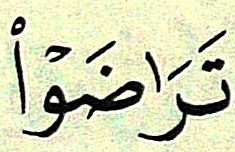 تَرَٰضَوۡاْ